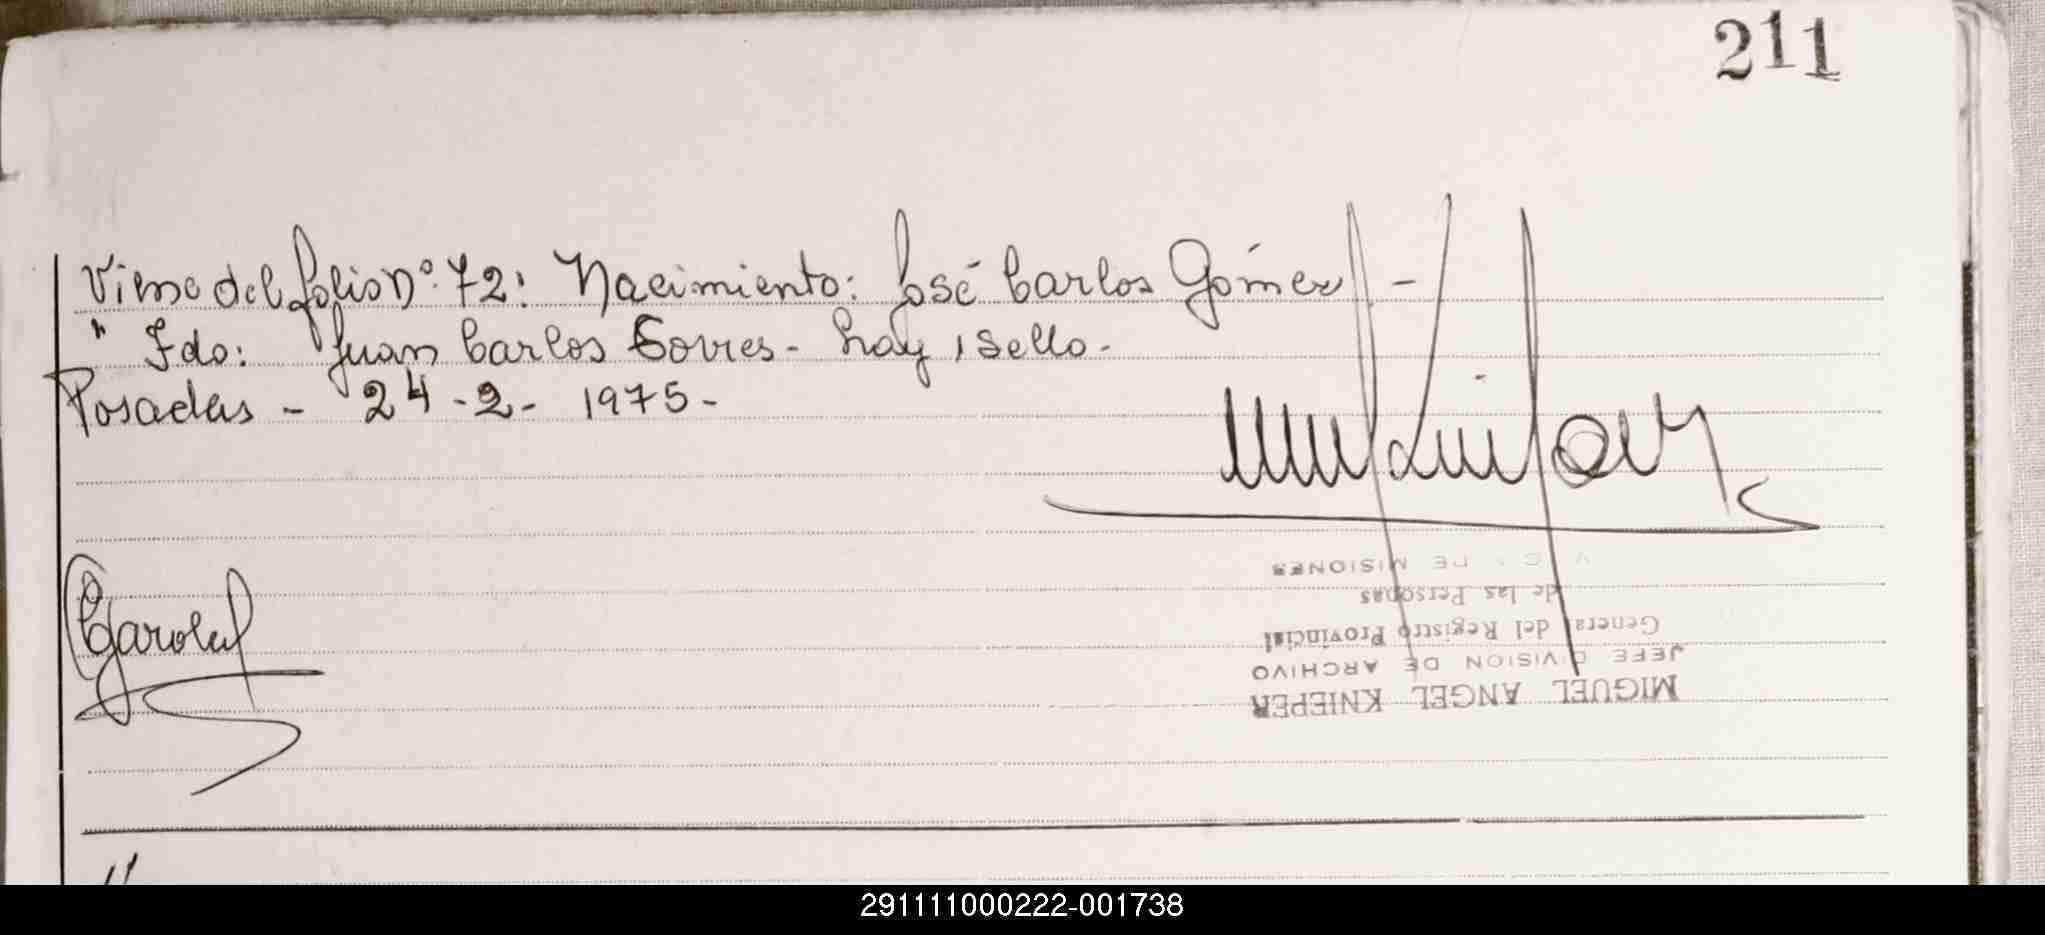 211
Viene del folio Nº 72: Nacimiento: José Carlos Gómez -
" Fdo: Juan Carlos Torres - hay 1 sello -
Posadas - 24 - 2 - 1975 -
DE MISIONES
de las Personas
General del Registro Provincial
JEFE DIVISION DE ARCHIVO
MIGUEL ANGEL KNIEPER
"
291111000222-001738